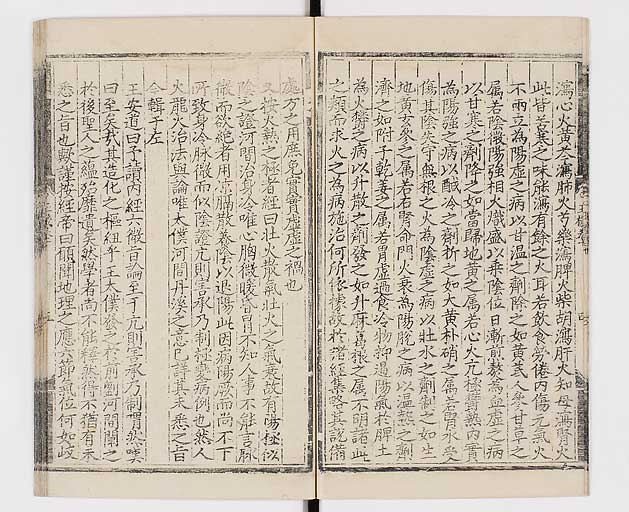 瀉心火黃芩瀉肺火芍藥瀉脾火柴胡瀉肝火知母瀉腎火
此皆苦寒之味能瀉有餘之火耳若飲食勞倦內傷元氣火
不兩立為陽虛之病以甘溫之劑除之如黃芪人參甘草之
属若陰微陽強相火熾盛以乘陰位日漸煎熬為血虛之病
以甘寒之劑降之如當歸地黃之属若心火亢極鬱熱內實
為陽強之病以醎冷之劑折之如大黃朴硝之属若腎水受
傷其陰失守無根之火為陰虛之病以壯水之劑制之如生
地黃玄參之属若右腎命門火衰為陽脫之病以溫熱之劑
濟之如附子乾薑之属若胃虛過食冷物抑遏陽氣於脾土
為火鬱之病以升散之劑發之如升麻葛根之属不明諸此
之類而求火之為病施治何所依據故於諸經集略其說備
處方之用庶免實實虛虛之禍也
又按火熱之極者經曰壯火散氣壯火之氣衰故有陽極似
陰之證河間治身冷唯心胸微暖昏冒不知人事不能言脉
微而欲絕者用凉膈散養陰以退陽此因病陽厥而尚不下
所致身冷脉微而似陰證亢則害承乃制極變病例也然人
火龍火治法與論唯太僕河間丹溪之意已詳其未悉之旨
今輯于左
王安道曰予讀內經六微旨論至于亢則害承乃制喟然嘆
曰至矣哉其造化之樞紐乎王太僕發之於前劉河間闡之
於後聖人之蘊殆靡遺矣然學者尚不能釋然得不猶有未
悉之旨也歟謹按經帝曰願聞地理之應六節氣位何如岐